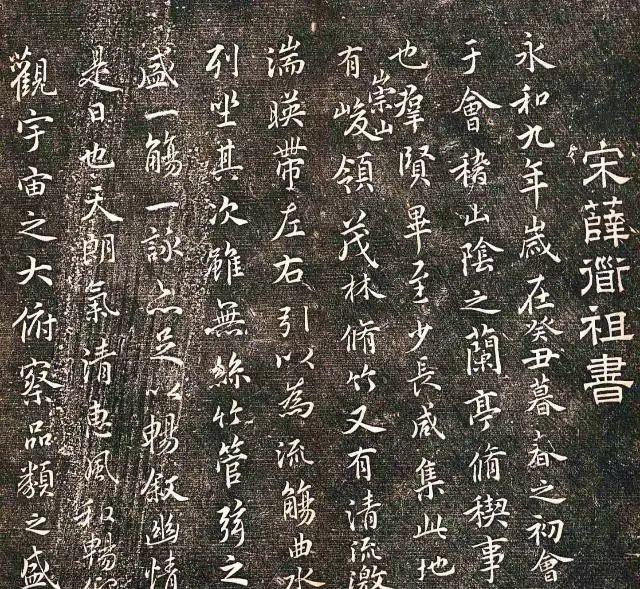 宋薛道祖書
永和九年歲在癸丑暮春之初會
于會稽山陰之蘭亭脩稧事
也羣賢畢至少長咸集此地
有崇山峻領茂林脩竹又有清流激
湍暎帶左右引以為流觴曲水
列坐其次雖無絲竹管弦之
盛一觴一詠亦足以暢叙幽情
是日也天朗氣清惠風和暢仰
觀宇宙之大俯察品類之盛